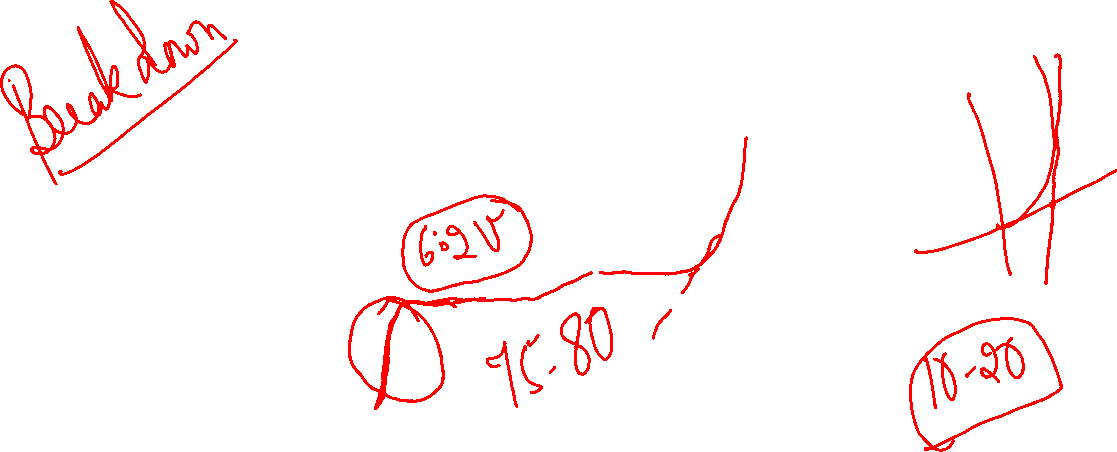 Breakdown
6.2V
75-80
10-20